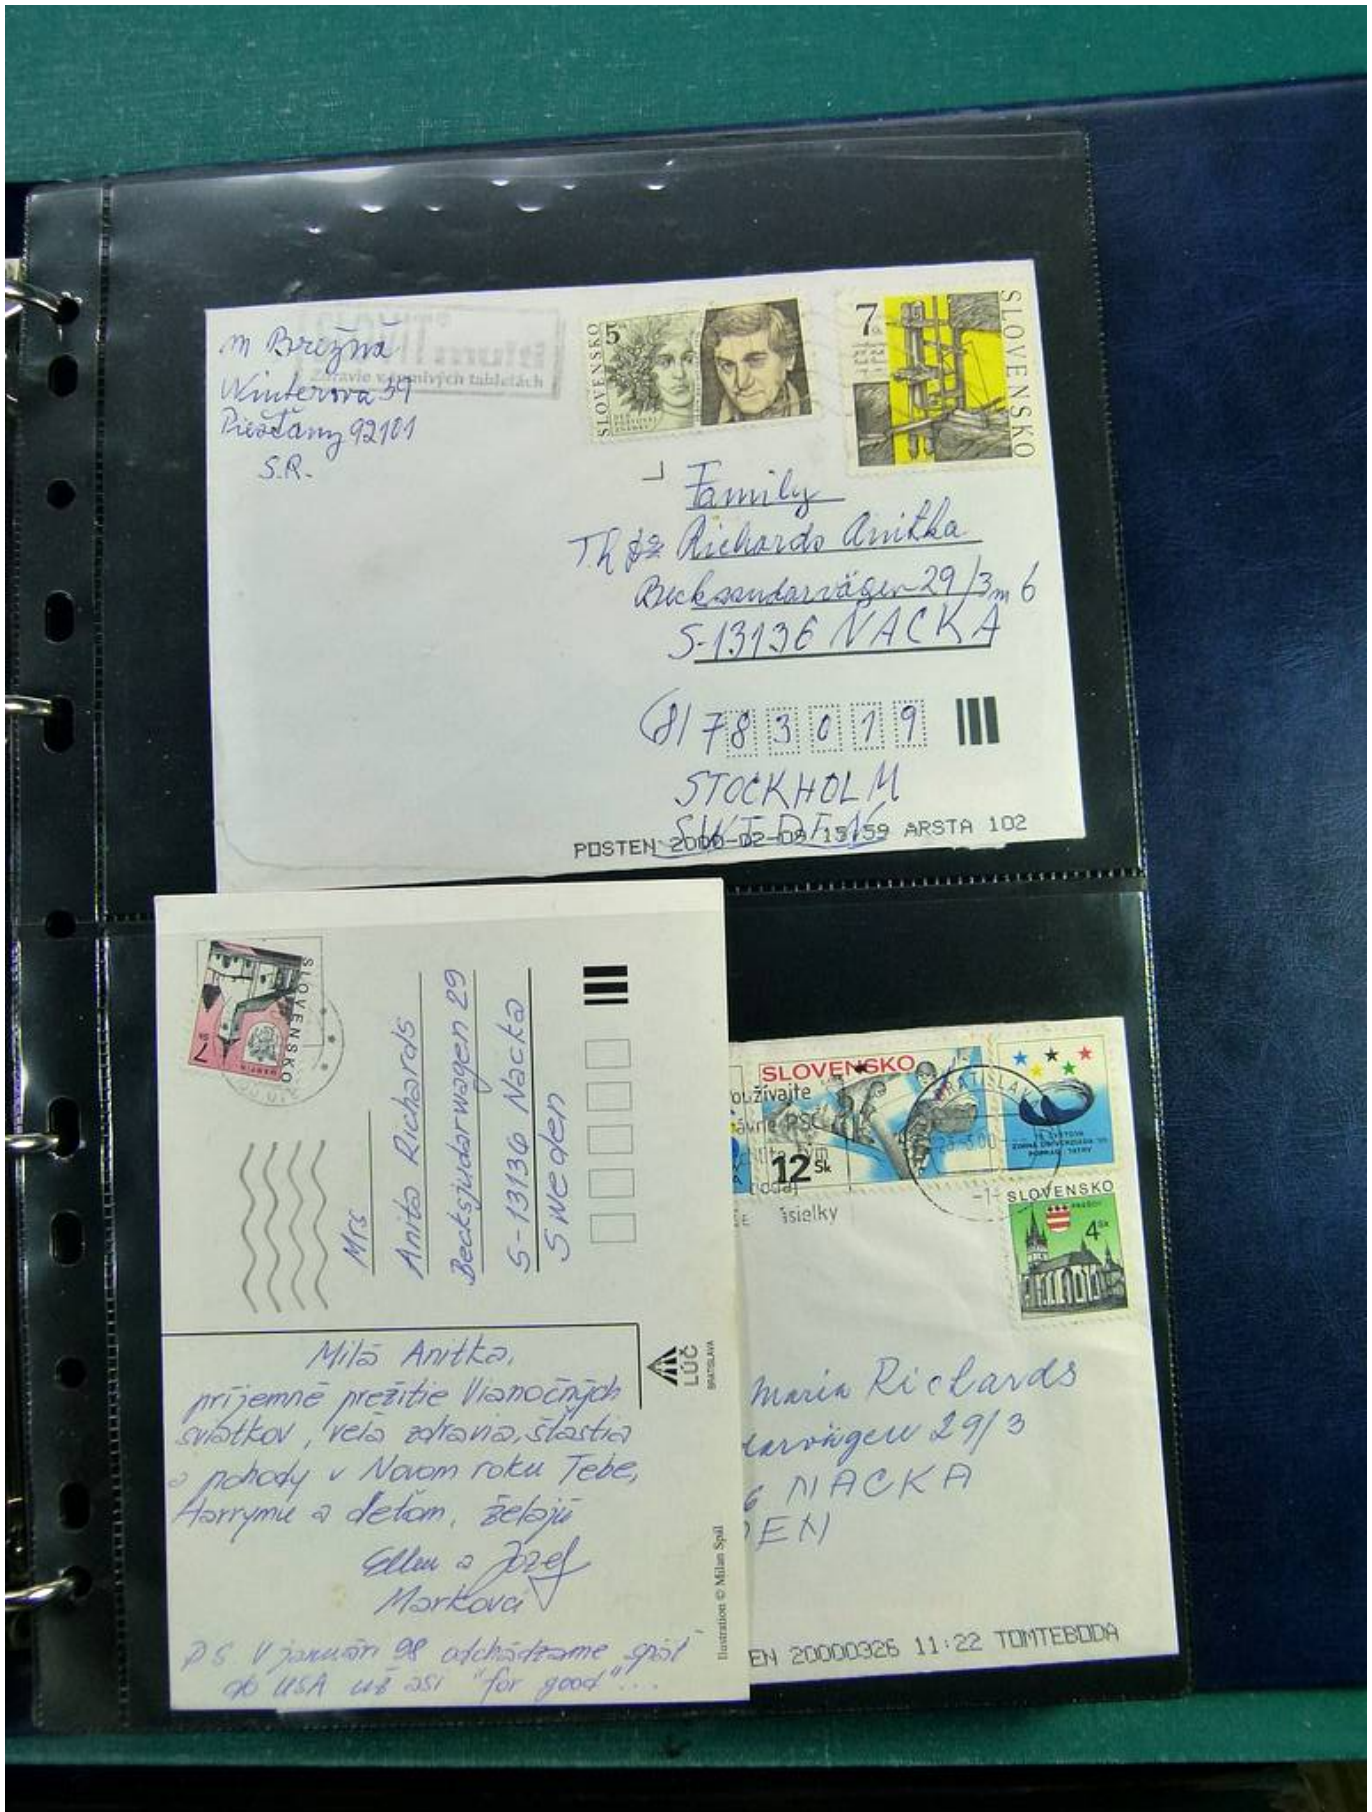 M Brezina
Winterova 59
Piešťany 92101
S.R.
Zdravie v šumivých tabletách
SLOVENSKO
5
7
SLOVENSKO
Family
Richards Anitka
29/3
6
S-13136 NACKA
(8) 7 8 3 0 1 9
STOCKHOLM
SWEDEN
POSTEN 2000-02-09 15:59 ARSTA 102
SLOVENSKO
7 Sk
MARTIN
Mrs
Anita Richards
Becksjudarwagen 29
S-13136 Nacka
Sweden
LÚČ
BRATISLAVA
Milá Anitka,
príjemné prežitie Vianočných
sviatkov, veľa zdravia, šťastia
a pohody v Novom roku Tebe,
Harrymu a deťom, želajú
Ellen a Jozef
Markovci
PS V januári 98 odchádzame späť
do USA už asi "for good"...
Ilustration © Milan Spál
SLOVENSKO
12 Sk
oužívajte
PSČ
sielky
BRATISLAVA
-1-
SLOVENSKO
PREŠOV
4 Sk
Maria Richards
darvägen 29/3
6 NACKA
DEN
EN 20000326 11:22 TOMTEBODA